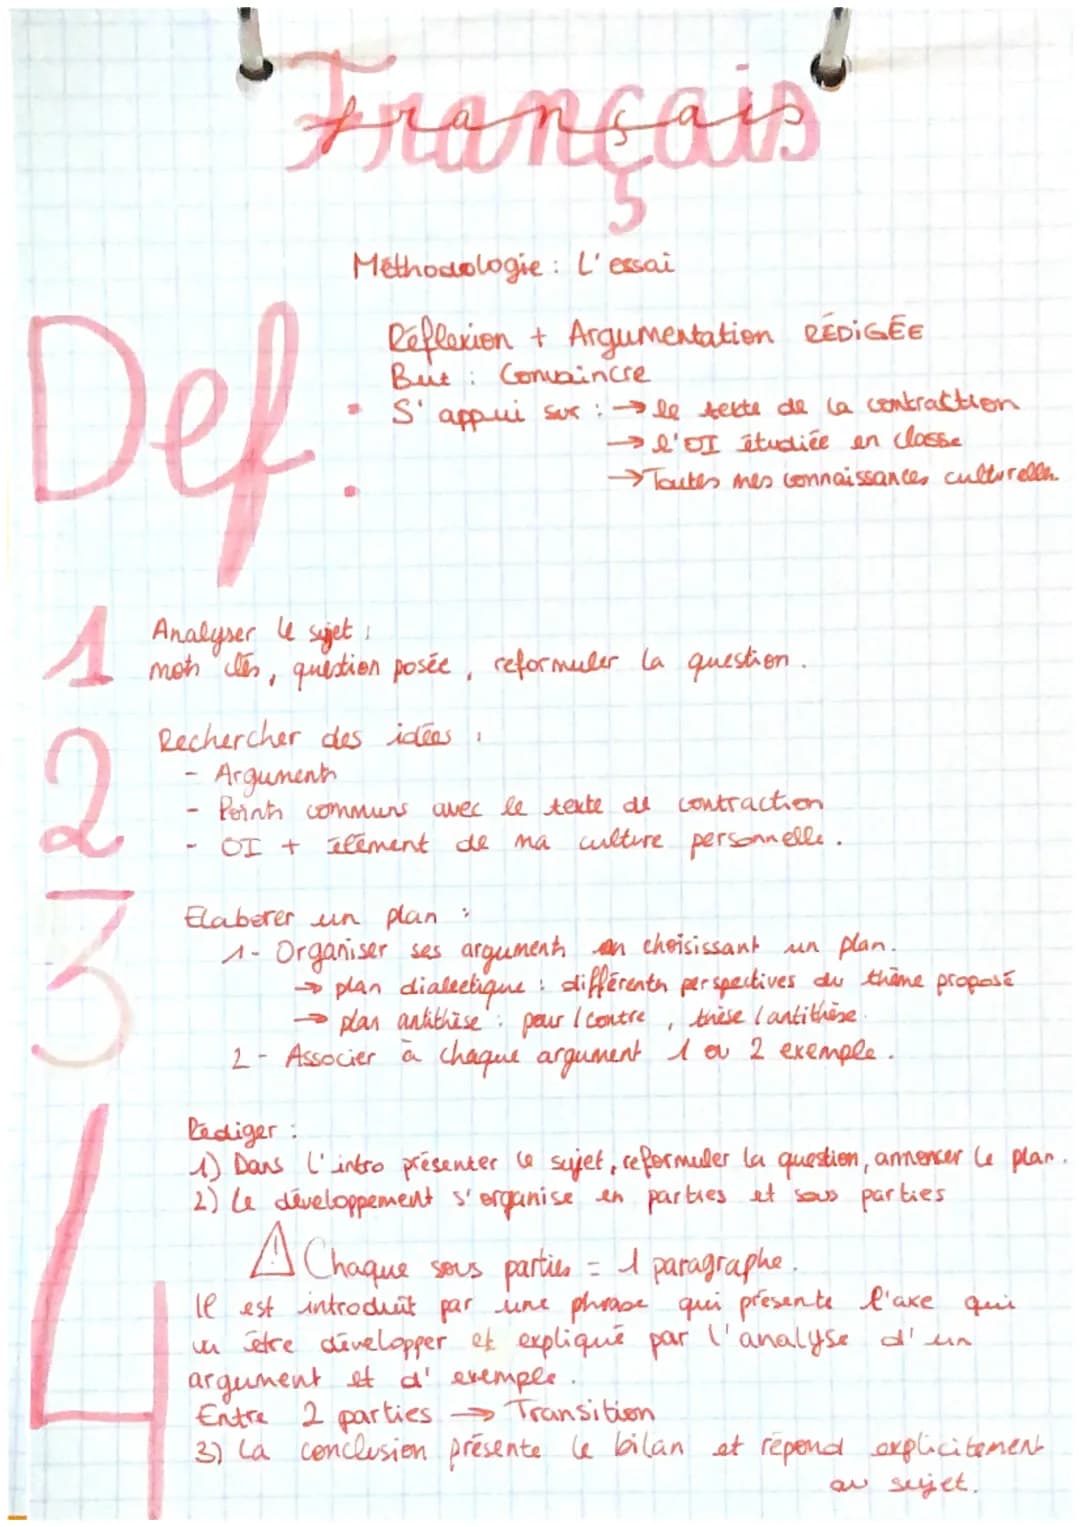 Français
Méthodologie : L'essai
Def :
Réflexion + Argumentation RÉDIGÉE
But : Convaincre
S'appui sur : → le texte de la contraction
→ l'OI étudiée en classe
→ Toutes mes connaissances culturelles
1 Analyser le sujet :
mots clés, question posée, reformuler la question.
2 Rechercher des idées :
- Arguments
- Points communs avec le texte de contraction
- OI + élément de ma culture personnelle.
3 Elaborer un plan :
1- Organiser ses arguments en choisissant un plan.
→ plan dialectique : différents perspectives du thème proposé
→ plan antithèse : pour / contre, thèse / antithèse.
2- Associer à chaque argument 1 ou 2 exemple.
4 Rédiger :
1) Dans l'intro présenter le sujet, reformuler la question, annoncer le plan.
2) Le développement s'organise en parties et sous parties
⚠ Chaque sous parties = 1 paragraphe.
Il est introduit par une phrase qui présente l'axe qui
va être développer et expliqué par l'analyse d'un
argument et d'exemple.
Entre 2 parties → Transition
3) La conclusion présente le bilan et répond explicitement
au sujet.